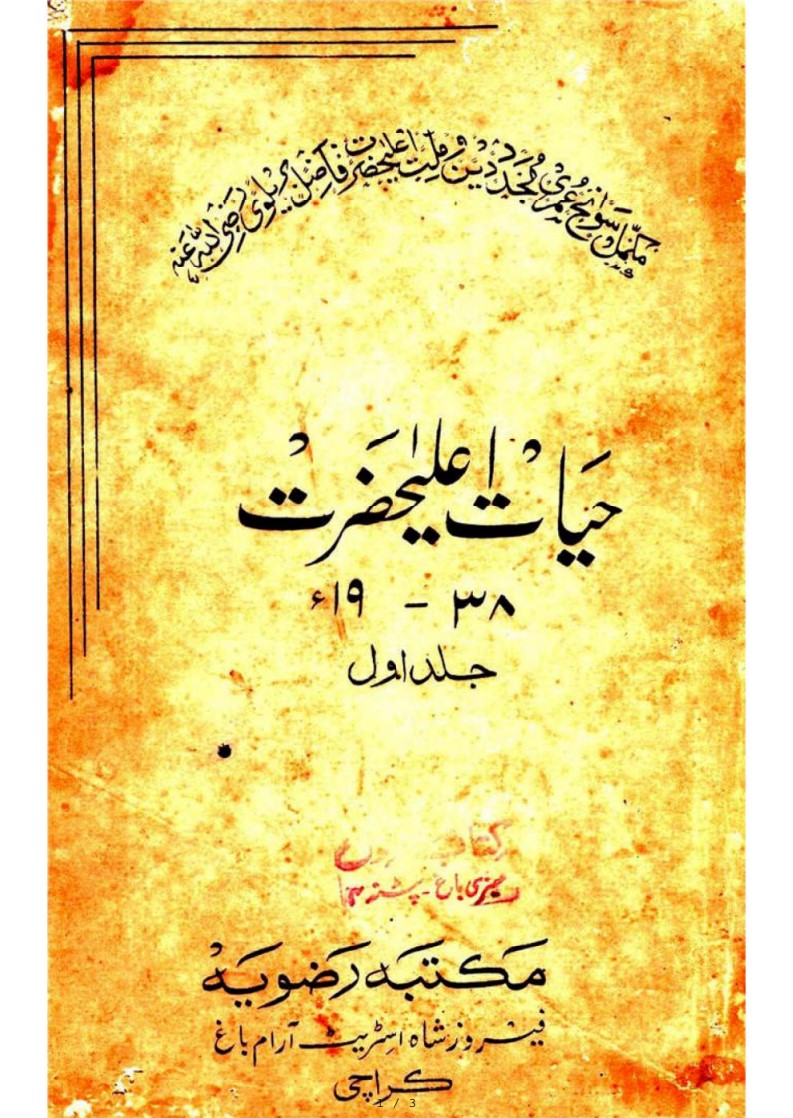 مکمل سوانح عمری مجدد دین و ملت اعلیحضرت فاضل بریلوی رضی اللہ عنہ
حیات اعلیحضرت
۳۸ - ۱۹ء
جلد اول
سبزی باغ۔ پٹنہ ۴
مکتبہ رضویہ
فیروز شاہ اسٹریٹ آرام باغ
کراچی
1 / 3